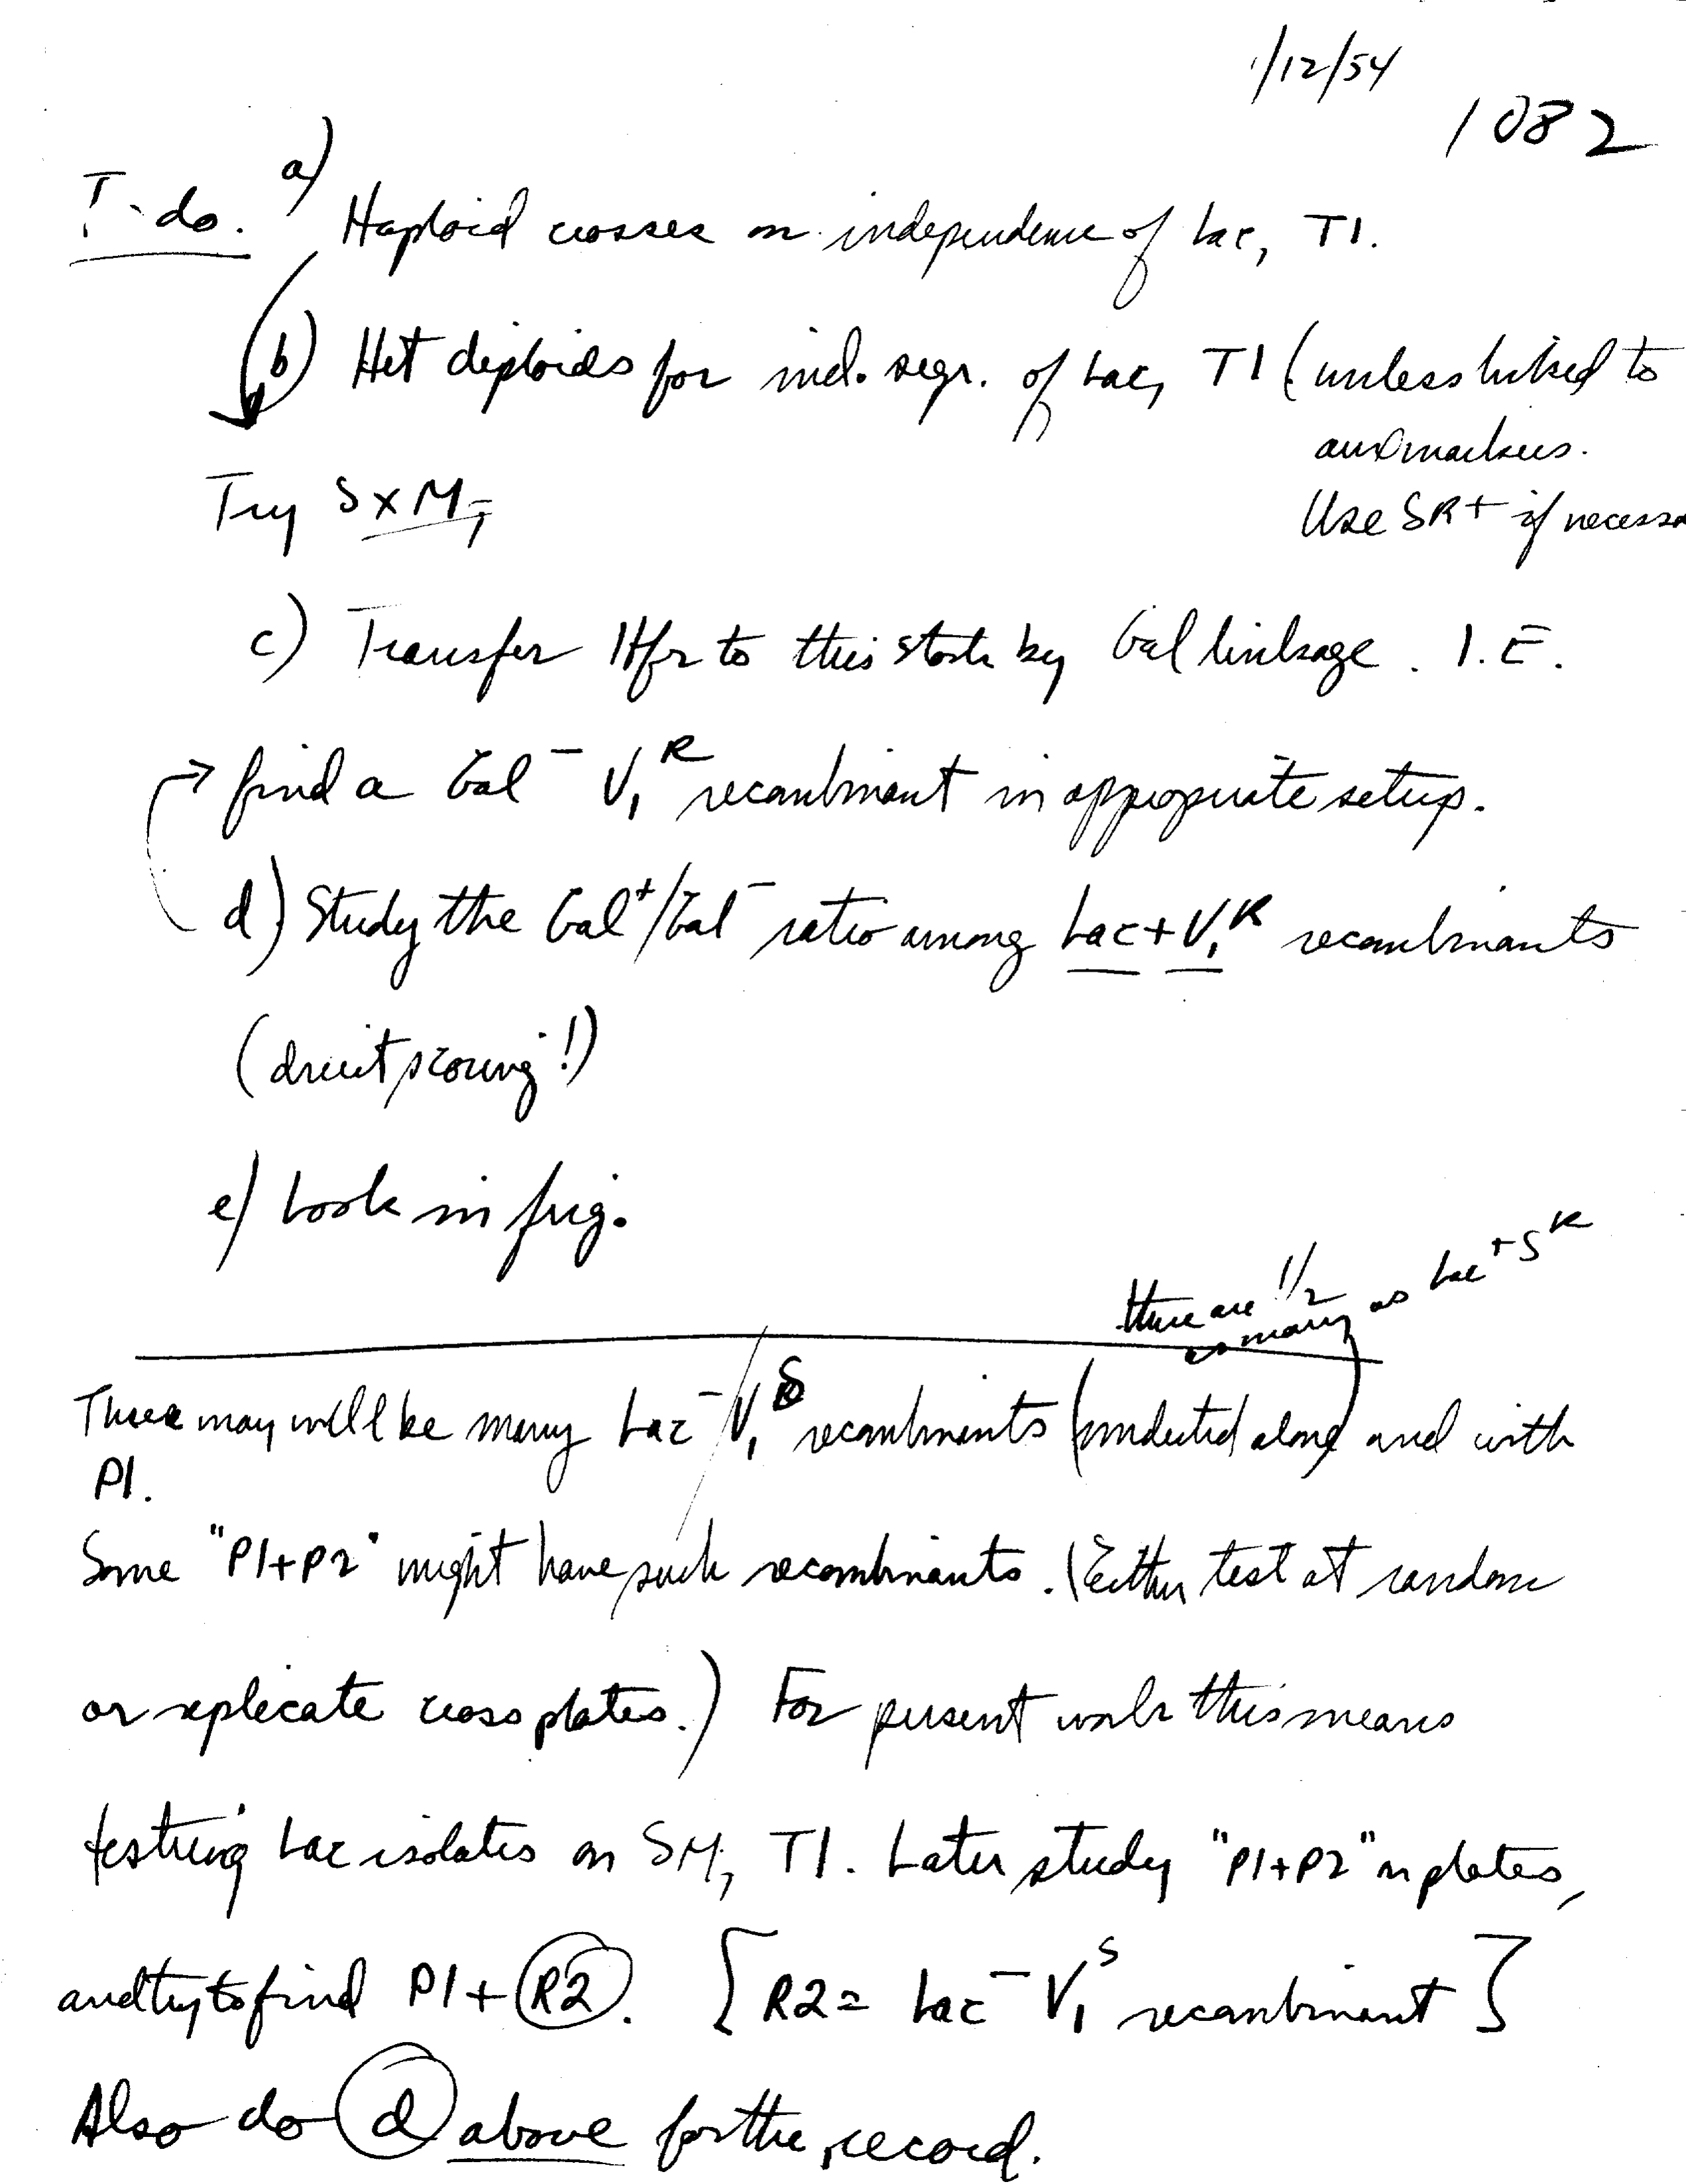 1/12/54
1082
To do. a) Haploid crosses on independence of Lac, T1.
b) Het diploids for ind. segr. of Lac, T1 (unless linked to
aux markers.
Try S x M,
Use SR+ if
c) Transfer Hfr to this stock by Gal linkage. I.E.
find a Gal⁻ V₁ᴿ recombinant in appropriate setup.
d) Study the Gal⁺/Gal⁻ ratio among Lac+ V₁ᴿ recombinants
(direct scoring!)
e) Look in frig.
there are 1/2
as many as Lac⁺Sᴿ
There may well be many Lac⁻ V₁ˢ recombinants (undetected alone) and with
P1.
Some "P1+P2" might have such recombinants. (Either test at random
or replicate cross plates.) For present work this means
testing Lac isolates on SM, T1. Later study "P1+P2" on plates,
and try to find P1 + R2. [R2 = Lac⁻ V₁ˢ recombinant]
Also do d above for the record.